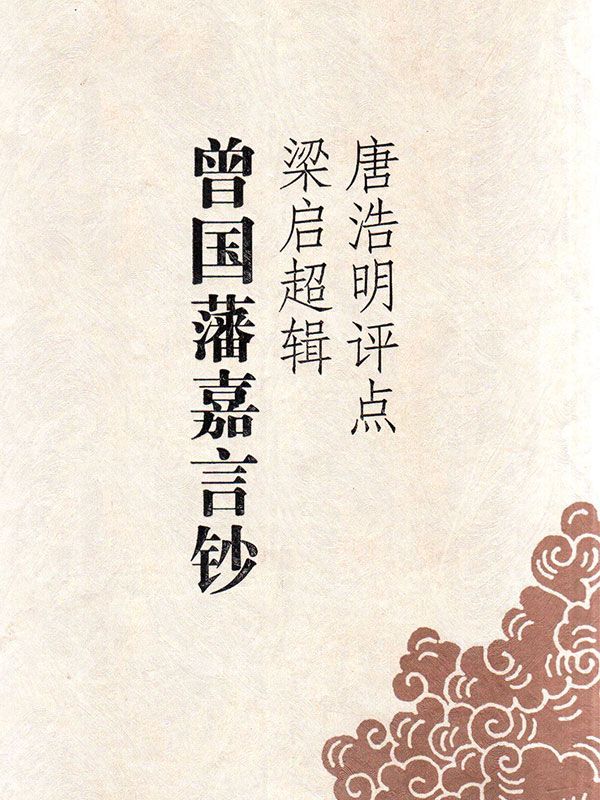 唐浩明评点
梁启超辑
曾国藩嘉言钞